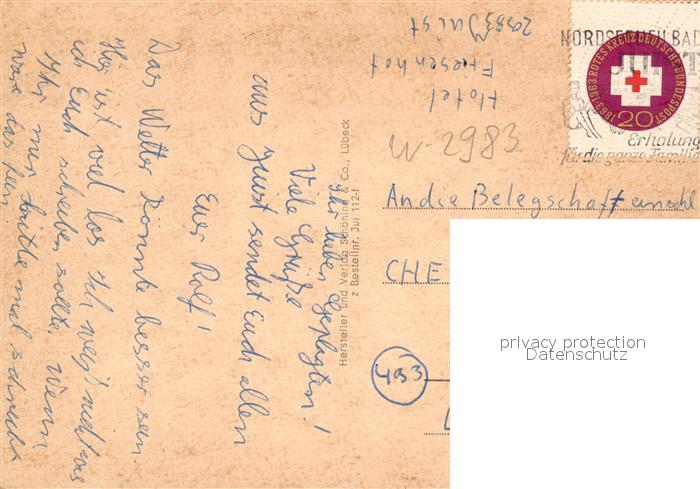 Ihr lieben Geplagten!
Viele Grüße
aus Juist sendet Euch allen
Euer Rolf!
Das Wetter könnte besser sein.
Hier ist viel los Ich weiß nicht was
ich Euch schreiben sollte. Wenn
Ihr mir bitte mal schreibt
wäre das
Hotel
Friesenhof
2983 Juist
W-2983
Hersteller und Verlag Schöning & Co., Lübeck
z Bestellnr. Jui 112-f
NORDSEEHEILBAD
JUIST
Erholung
für die ganze Familie
1863·1963 ROTES KREUZ DEUTSCHE BUNDESPOST
20
An die Belegschaft
CHE
493
privacy protection
Datenschutz